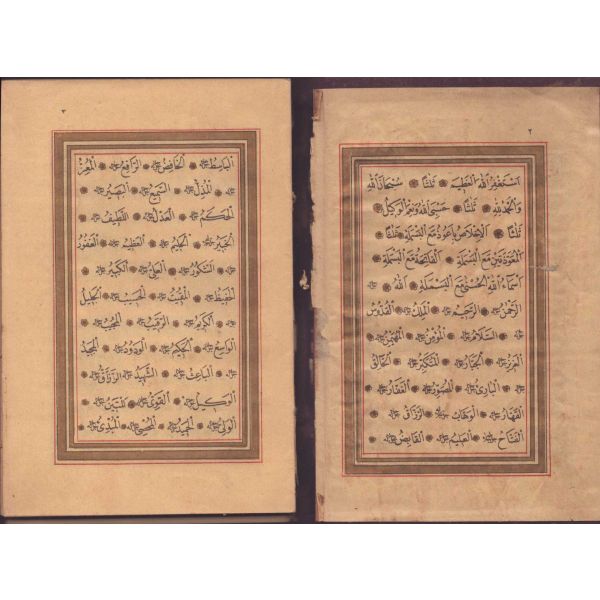 ٢
استغفر الله العظيم ثلثا سبحان الله
والحمد لله ثلثا حسبي الله ونعم الوكيل
ثلثا الاخلاص باعوذ مع البسملة ثلثا
المعوذتين مع البسملة الفاتحة مع البسملة
اسماء الله الحسنى مع البسملة الله
الرحمن الرحيم الملك القدوس
السلام المؤمن المهيمن
العزيز الجبار المتكبر الخالق
البارئ المصور الغفار
القهار الوهاب الرزاق
الفتاح العليم القابض
الباسط الخافض الرافع المعز
المذل السميع البصير
الحكم العدل اللطيف
الخبير الحليم العظيم الغفور
الشكور العلي الكبير
الحفيظ المقيت الحسيب الجليل
الكريم الرقيب المجيب
الواسع الحكيم الودود المجيد
الباعث الشهيد
الوكيل القوي المتين
الولي الحميد المحصي المبدئ